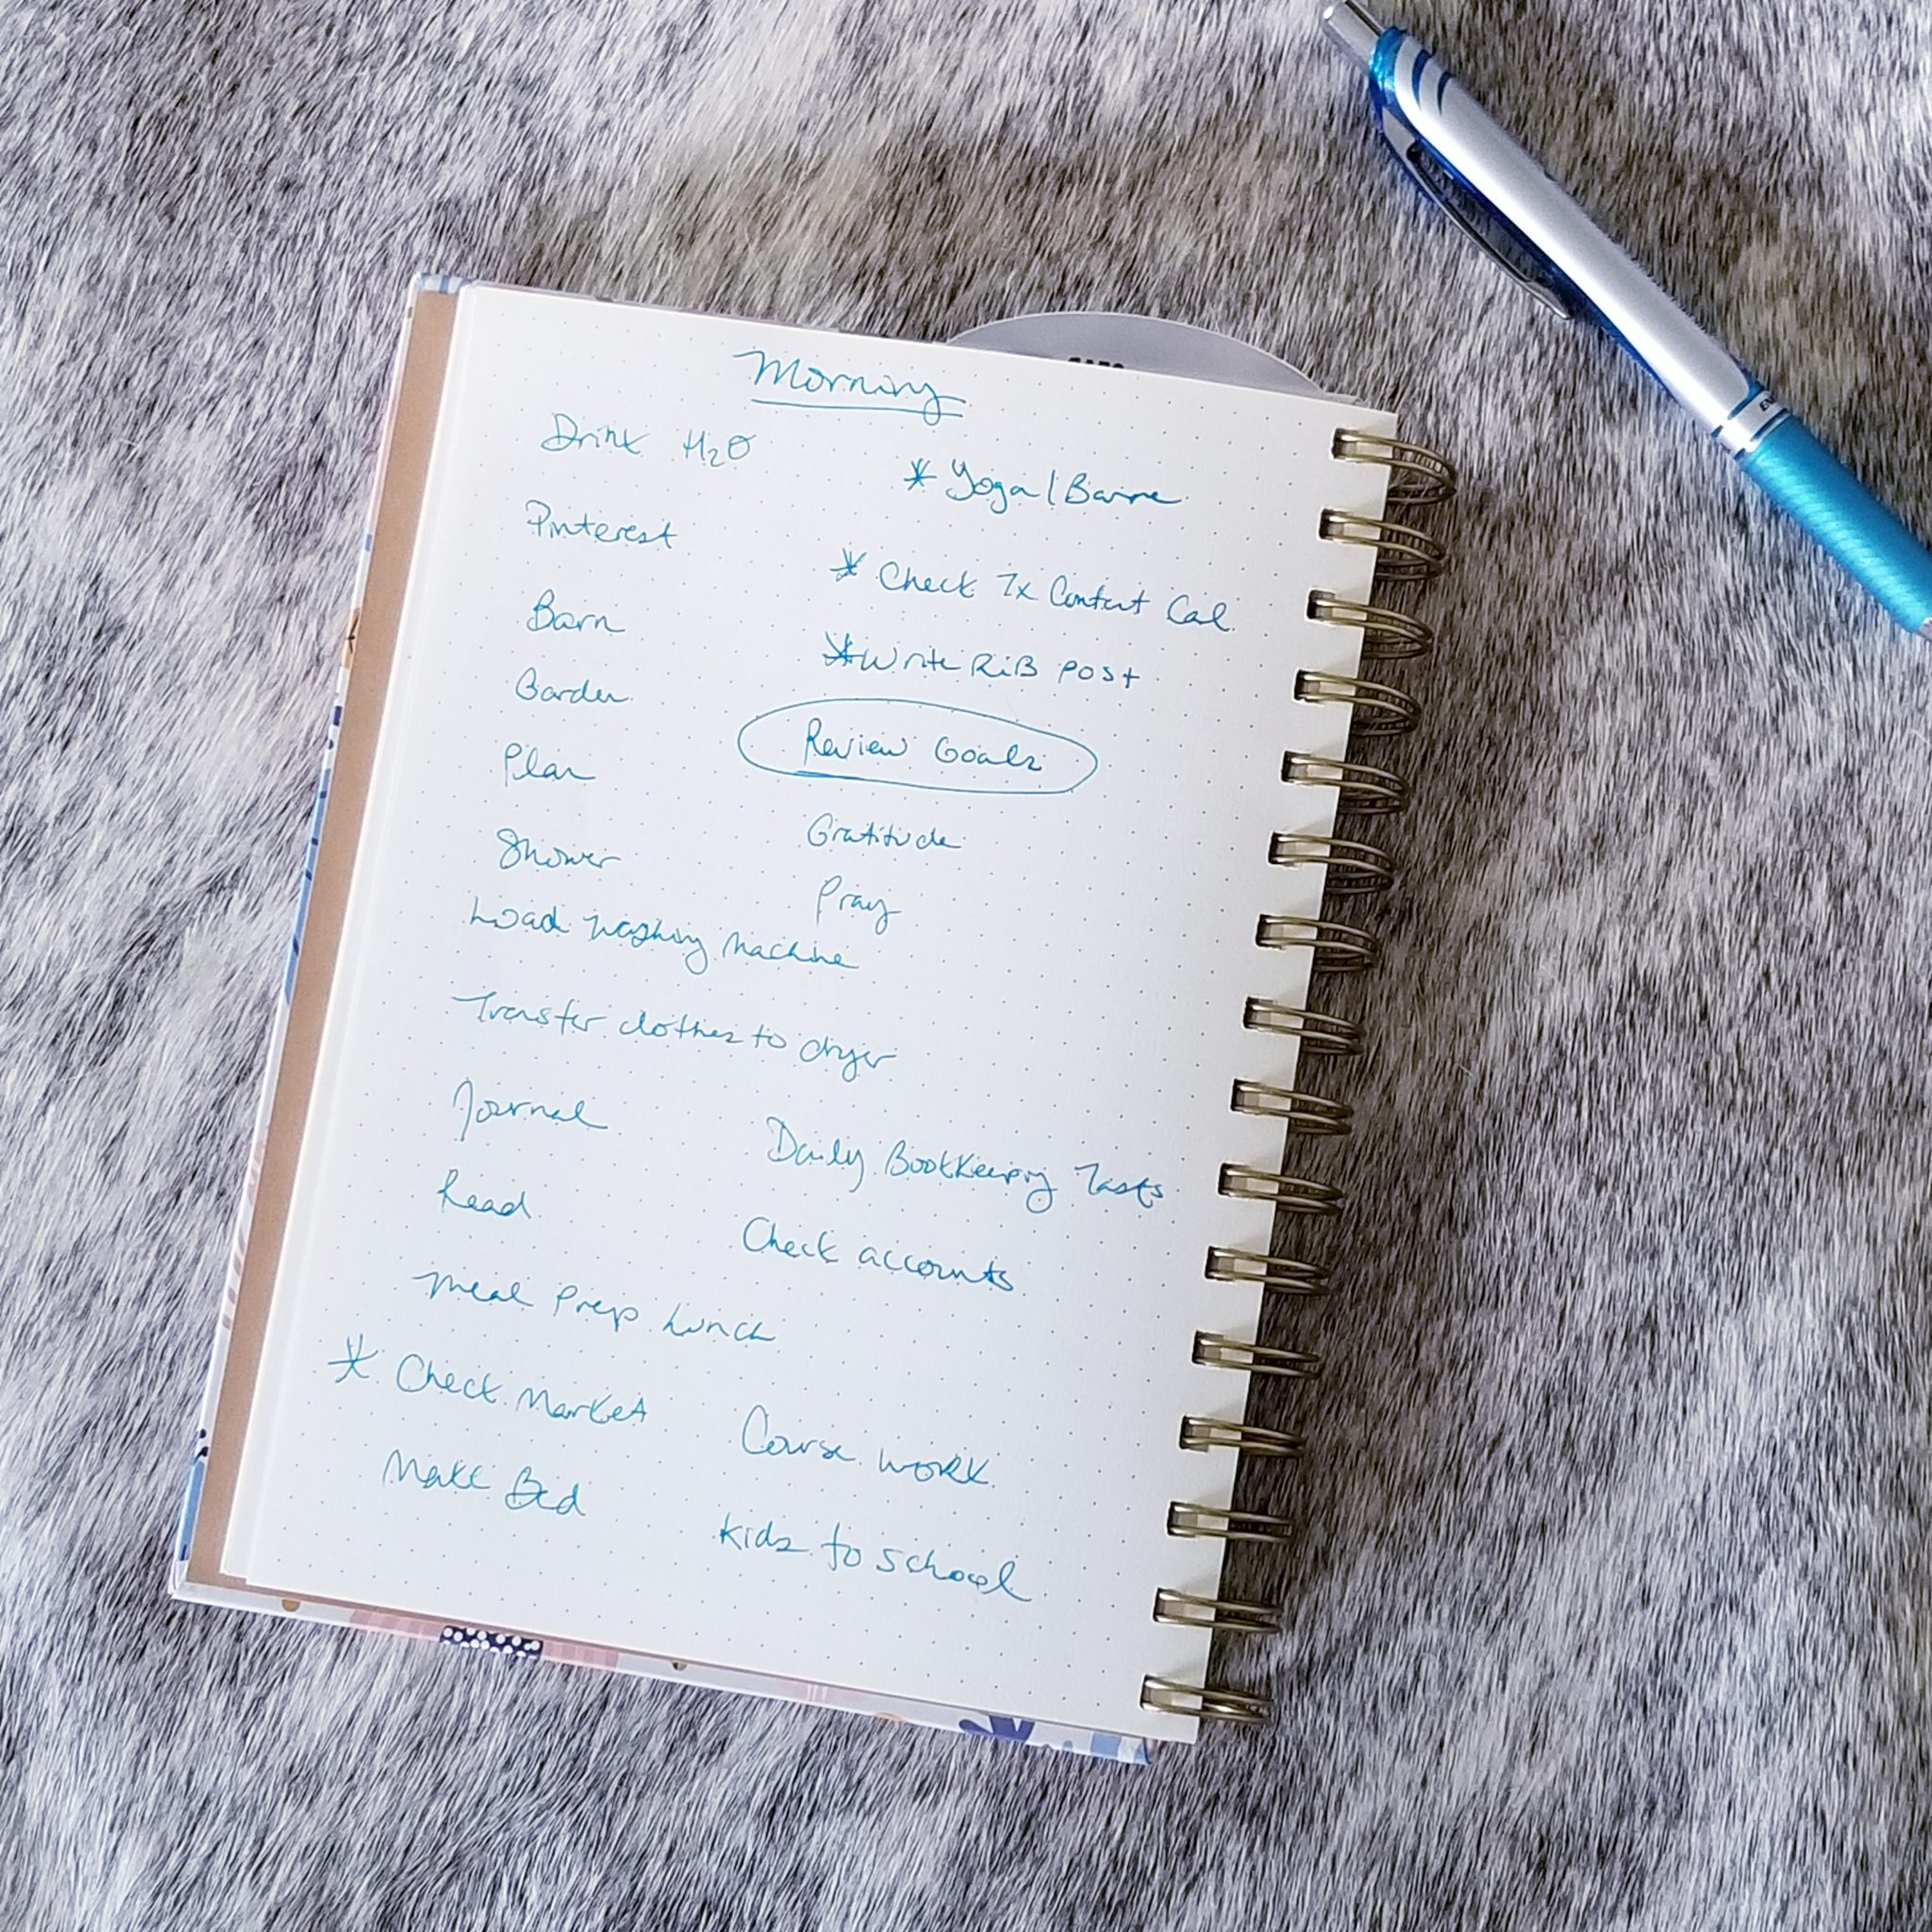 Morning
Drink H2O
* Yoga/Barre
Pinterest
* Check Tx Content Cal
Barn
* Write RiB post
Garden
Review Goals
Plan
Gratitude
Shower
Pray
Load Washing Machine
Transfer clothes to dryer
Journal
Daily Bookkeeping Tasks
Read
Check accounts
Meal Prep Lunch
* Check Market
Course work
Make Bed
kids to school